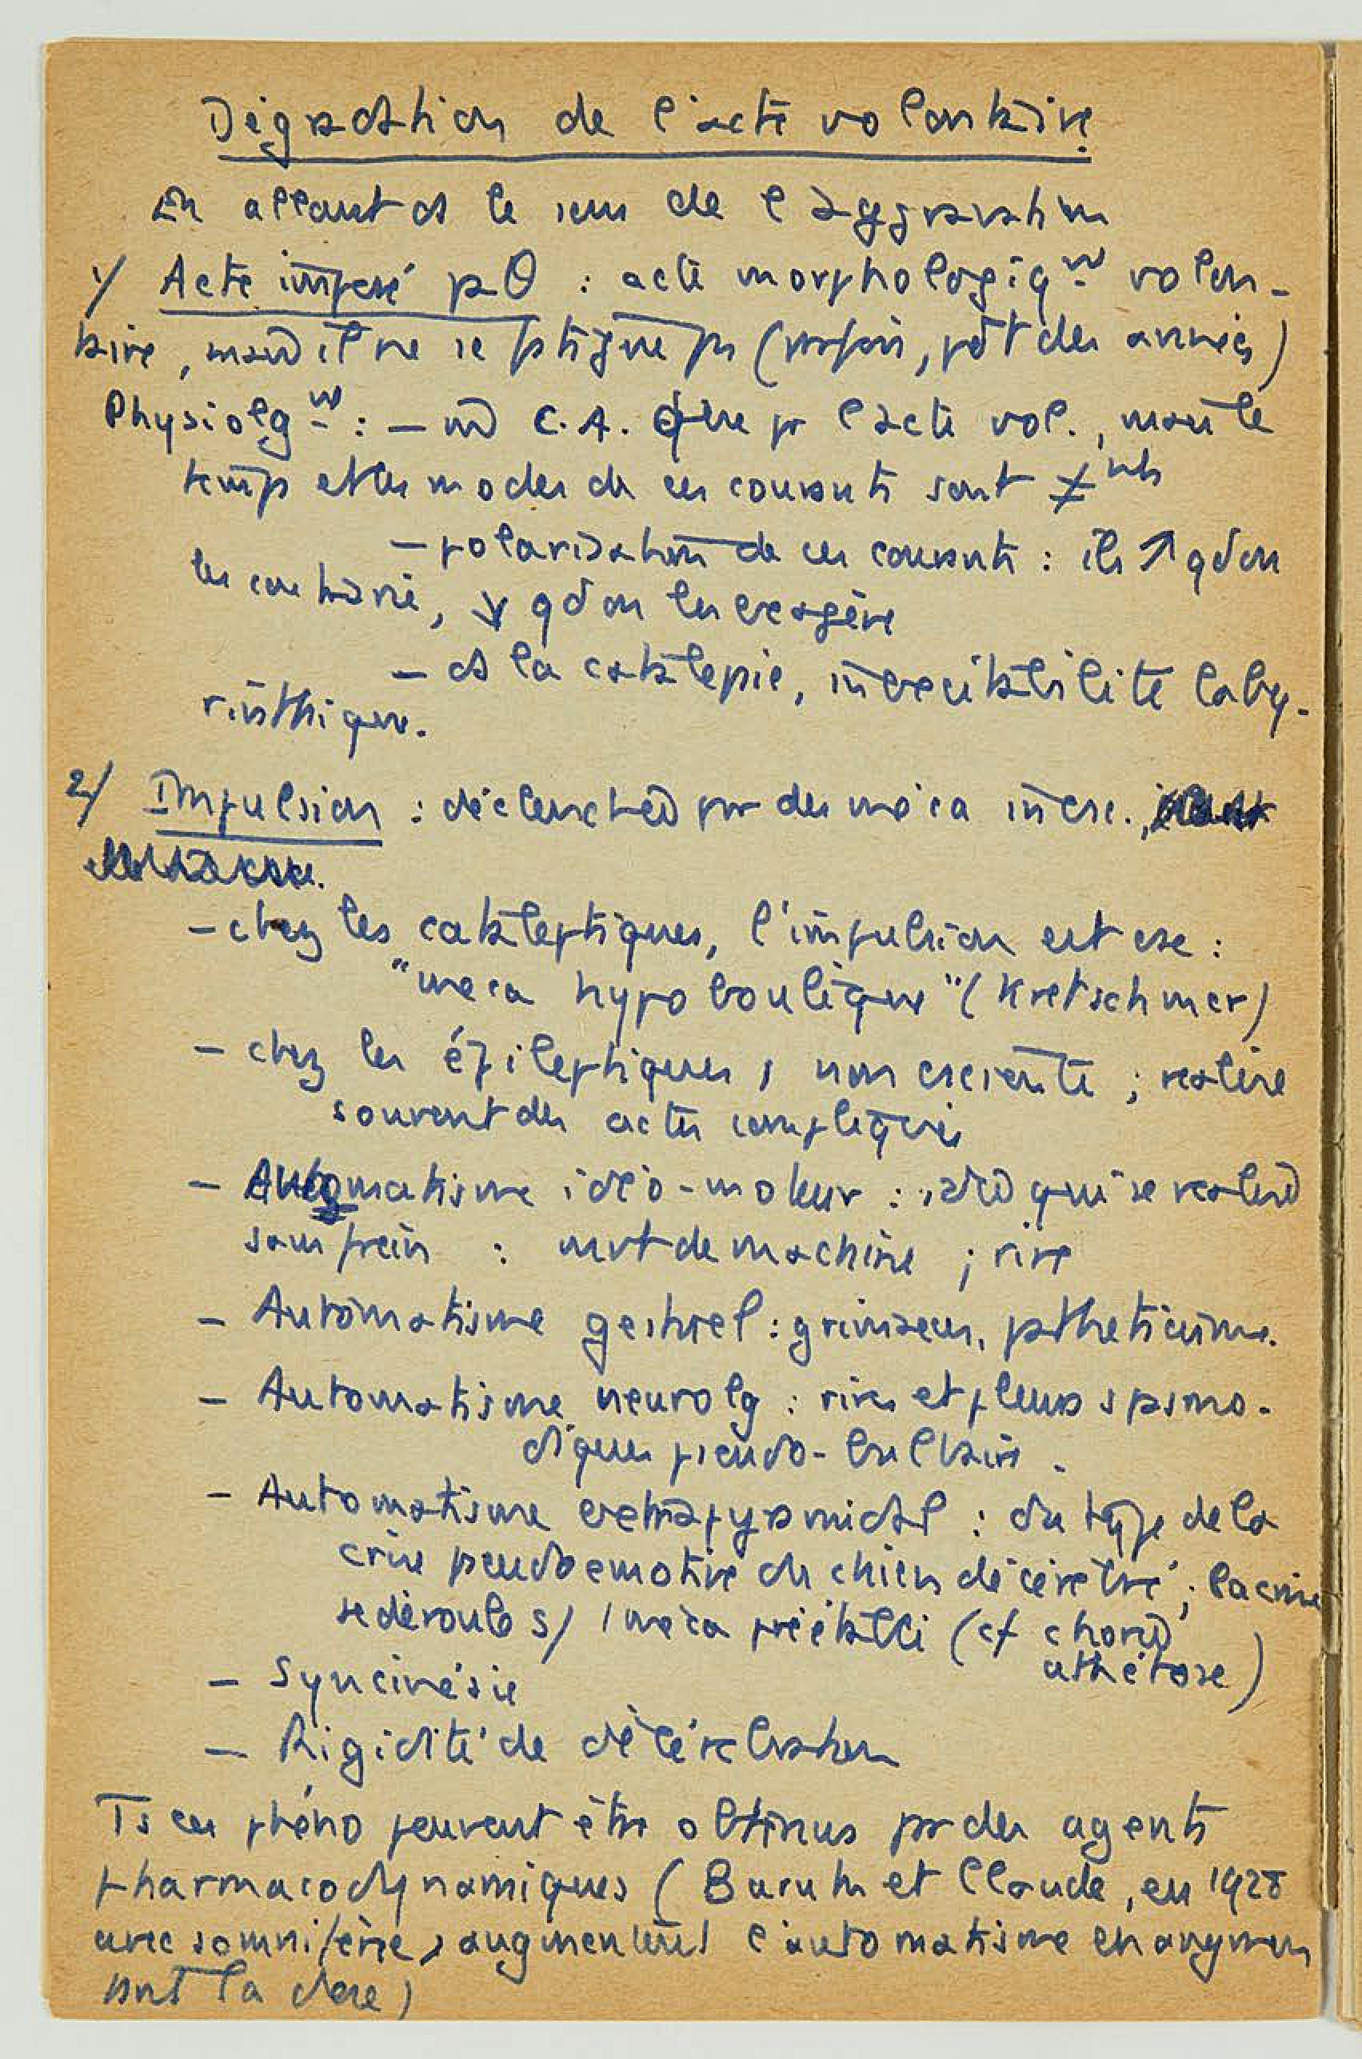 Dégradation de l'acte volontaire
En allant ds le sens de l'aggravation
1/ Acte imposé pθ : acte morphologiqw volon-
taire, mais il ne se fatigue ps (parfois, pdt des années)
Physiolgw : — m̄ C.A. que pr l'acte vol., mais le
temps et les modes de ces courants sont ≠nts
— polarisation de ces courants : ils ↗ qd on
les contrarie, ↘ qd on les exagère
— ds la catalepsie, inexcitabilité laby-
rinthique.
2/ Impulsion : déclenchée par des méca incsc.,
— chez les cataleptiques, l'impulsion est csc :
"méca hypoboulique" (Kretschmer)
— chez les épileptiques, non csciente ; réalise
souvent des actes compliqués
— Automatisme idéo-moteur : idée qui se réalise
sans frein : mvt de machine ; rire
— Automatisme gestuel : grimaces, pathéticisme.
— Automatisme neurolg : rires et pleurs spasmo-
diques pseudo-bulbaires.
— Automatisme extrapyramidal : du type de la
crise pseudoemotive du chien décérébré ; la crise
se déroule s/ 1 méca préétabli (cf chorée
athétose)
— Syncinésie
— Rigidité de décérébration
Ts ces phéno peuvent être obtenus par des agents
pharmacodynamiques (Baruk et Claude, en 1928
avec somnifène, augmentent l'automatisme en augmen
tant la dose)